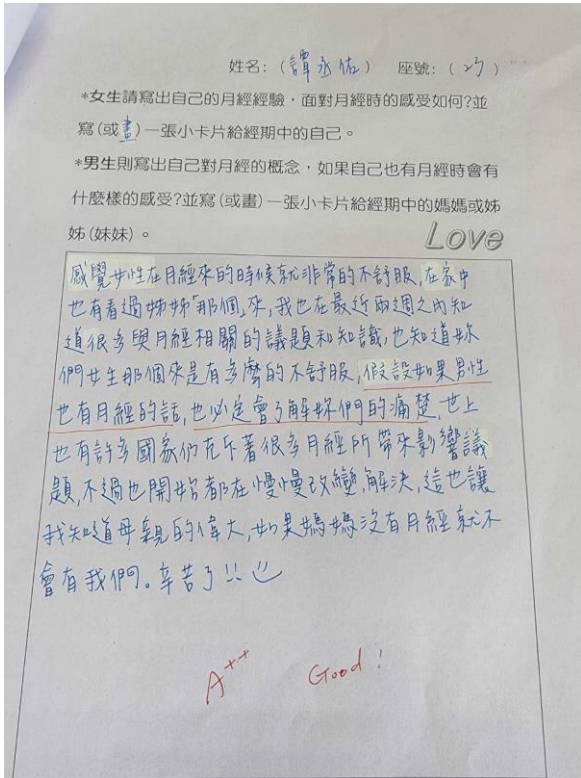 姓名：（譚永佑） 座號：（27）
*女生請寫出自己的月經經驗，面對月經時的感受如何?並
寫(或畫)一張小卡片給經期中的自己。
*男生則寫出自己對月經的概念，如果自己也有月經時會有
什麼樣的感受?並寫(或畫)一張小卡片給經期中的媽媽或姊
姊(妹妹)。
Love
感覺女性在月經來的時候就非常的不舒服，在家中
也有看過姊姊「那個」來，我也在最近兩週之內知
道很多與月經相關的議題和知識，也知道妳
們女生那個來是有多麼的不舒服，假設如果男性
也有月經的話，也必定會了解妳們的痛楚，世上
也有許多國家仍充斥著很多月經所帶來影響議
題，不過也開始都在慢慢改變，解決，這也讓
我知道母親的偉大，如果媽媽沒有月經就不
會有我們。辛苦了!!
A++ Good!